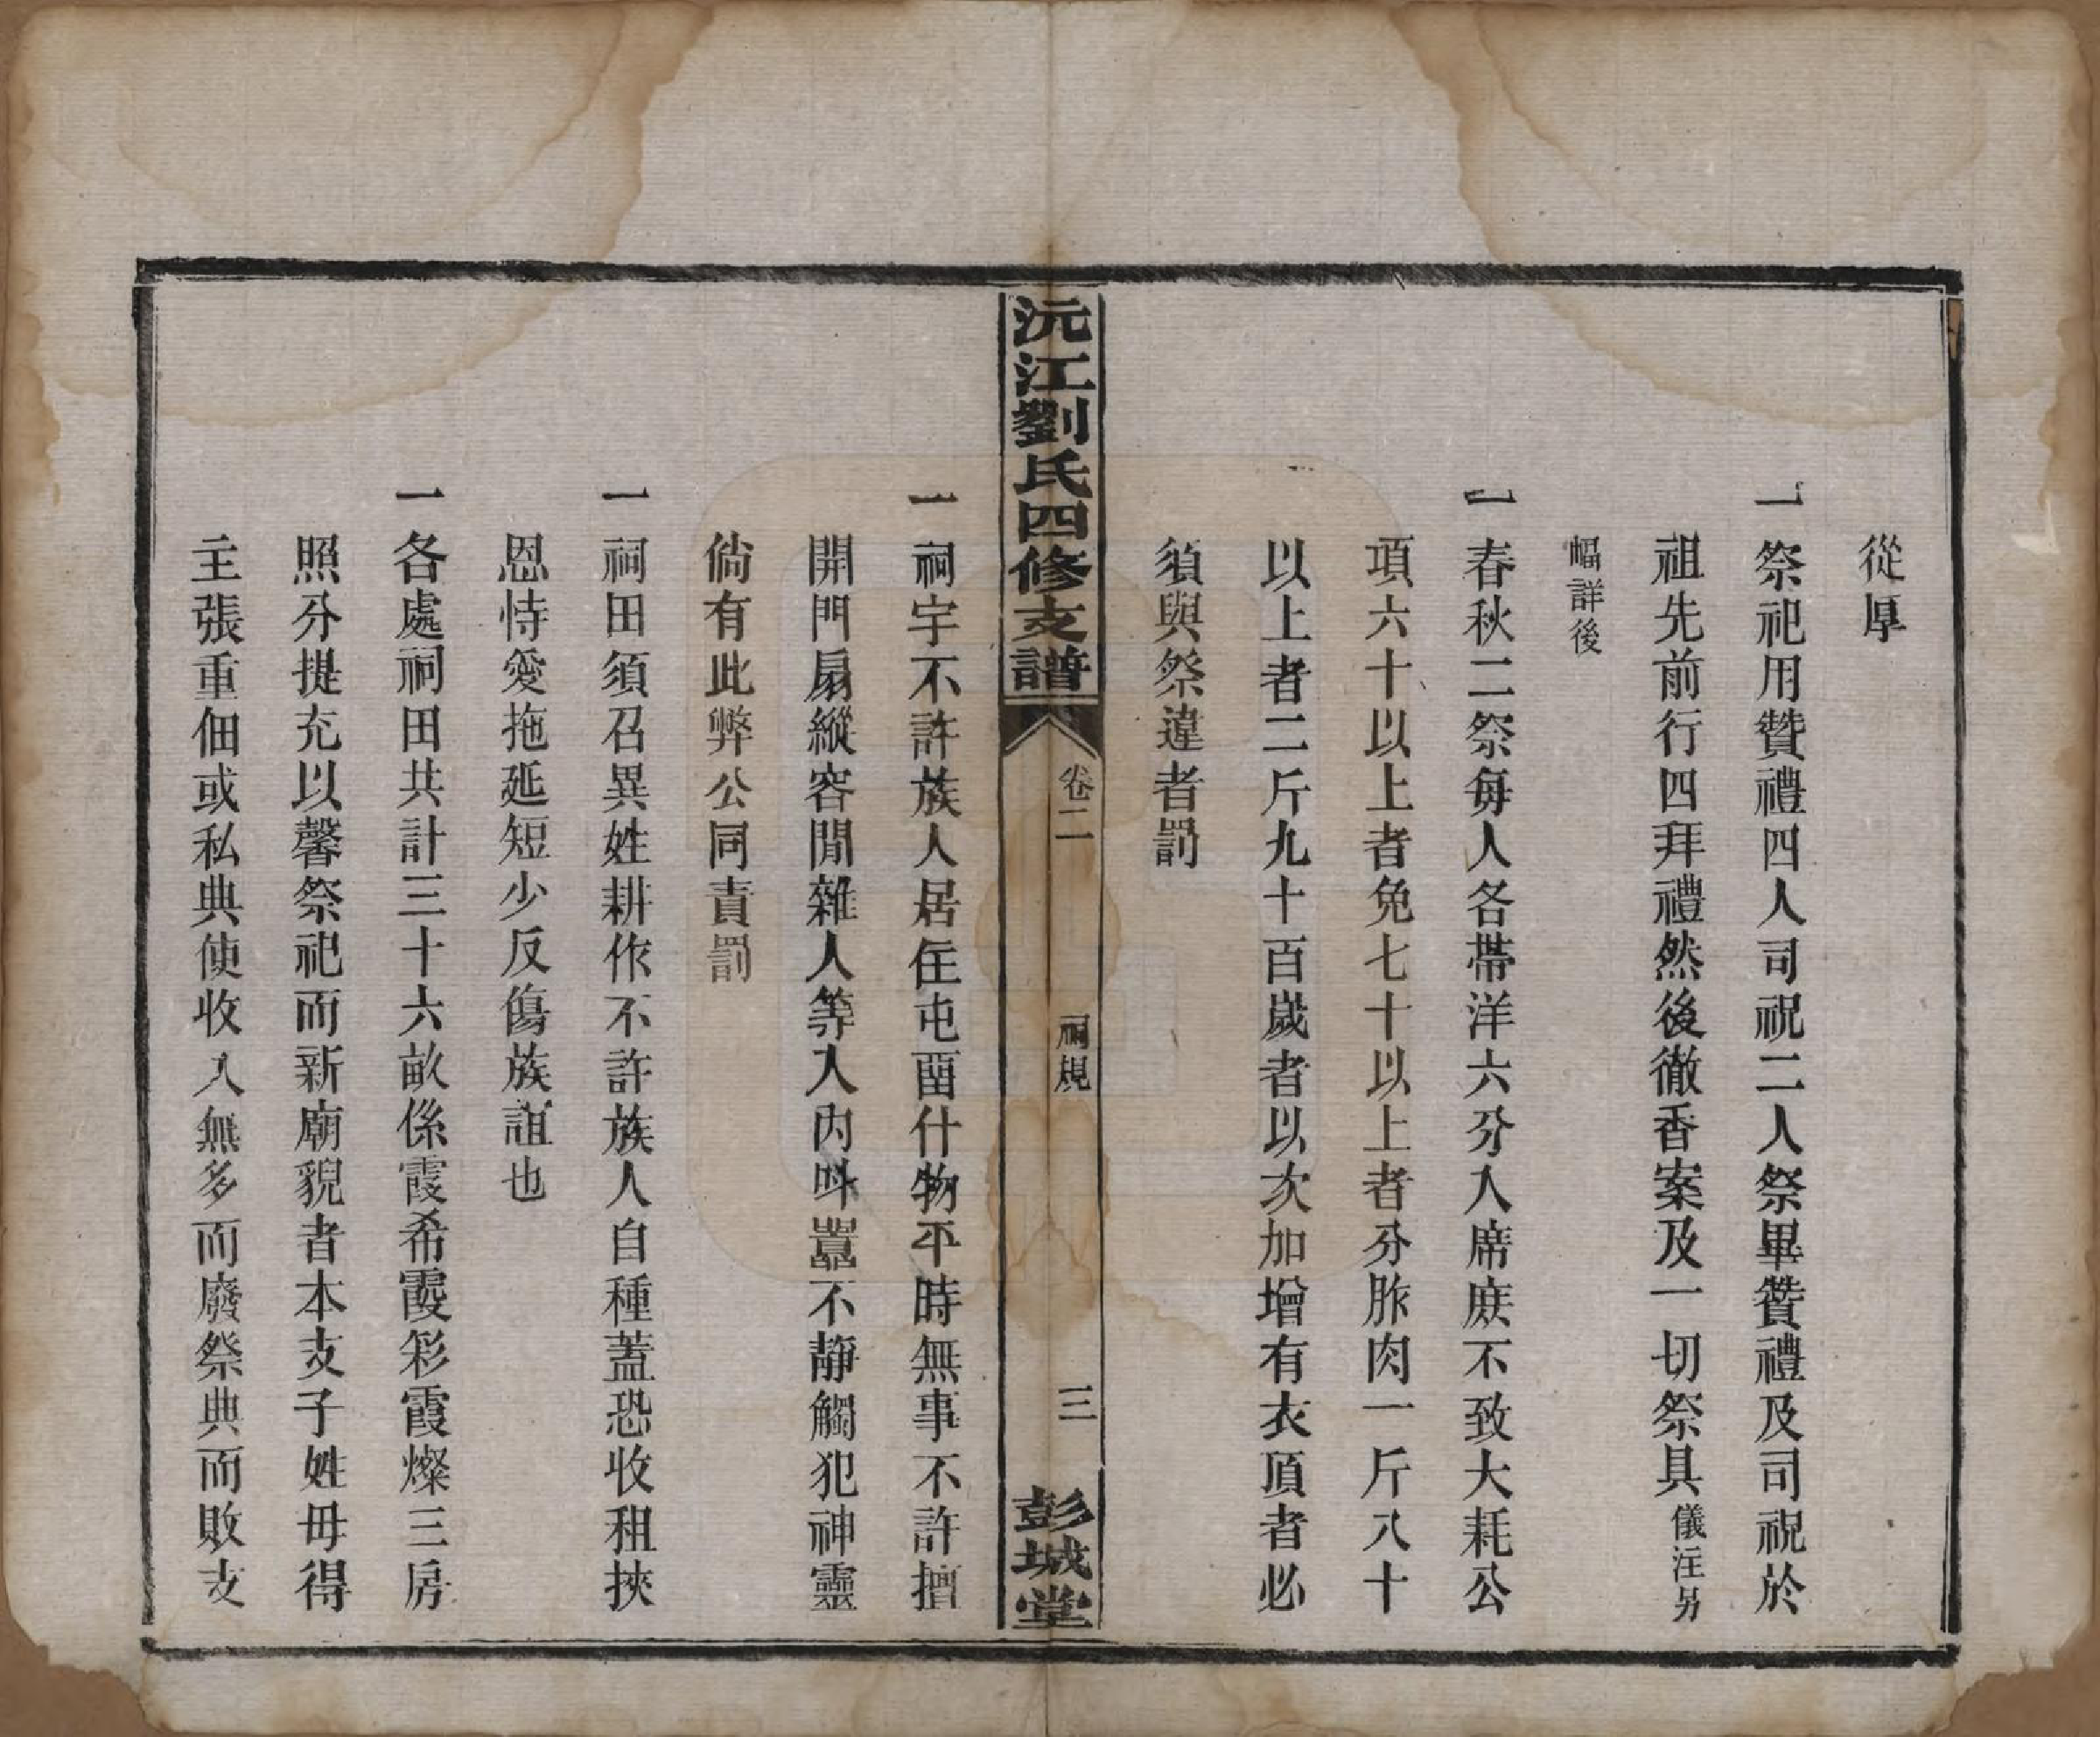 從厚
一祭祀用贊禮四人司祝二人祭畢贊禮及司祝於
祖先前行四拜禮然後徹香案及一切祭具儀注另
幅詳後
一春秋二祭每人各帶洋六分入席庶不致大耗公
項六十以上者免七十以上者分胙肉一斤八十
以上者二斤九十百歲者以次加增有衣頂者必
須與祭違者罰
沅江劉氏四修支譜
卷二
祠規
三
彭城堂
一祠宇不許族人居住屯畱什物平時無事不許擅
開門扇縱容閒雜人等入內呌囂不靜觸犯神靈
倘有此弊公同責罰
一祠田須召異姓耕作不許族人自種蓋恐收租挾
恩恃愛拖延短少反傷族誼也
一各處祠田共計三十六畝係霞希霞彩霞燦三房
照分提充以馨祭祀而新廟貌者本支子姓毋得
主張重佃或私典使收入無多而廢祭典而敗支